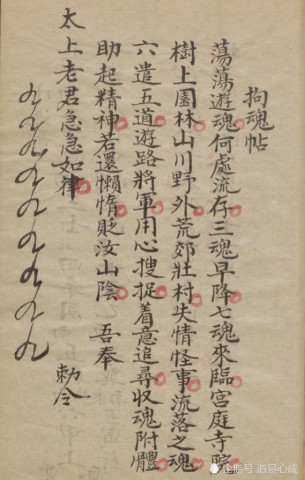 拘魂帖
蕩蕩遊魂何處流存三魂早降七魂來臨宮庭寺院
樹上園林山川野外荒郊壯村失情怪事流落之魂
六遣五道遊路將軍用心搜捉着意追尋收魂附體
助起精神若還懶惰貶汝山陰 吾奉
太上老君急急如律 勅令
九九九九九九九九
企鹅号 道易心成